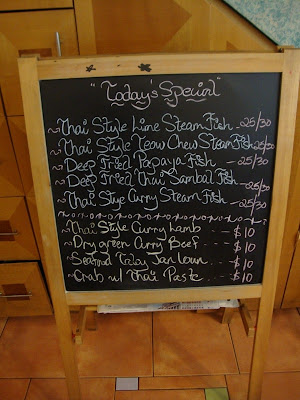 "Today's Special"
~Thai Style Lime Steam Fish -25/30
~Thai Style Teow Chew Steam Fish 25/30
~Deep Fried Papaya Fish -- 25/30
~Deep Fried Thai Sambal Fish - 25/30
~Thai Stye Curry Steam Fish - 25/30
~Thai Style Curry Lamb -- $10
~Dry green Curry Beef -- $10
~Seafood -- $10
~Crab w/ Thai Paste -- $10